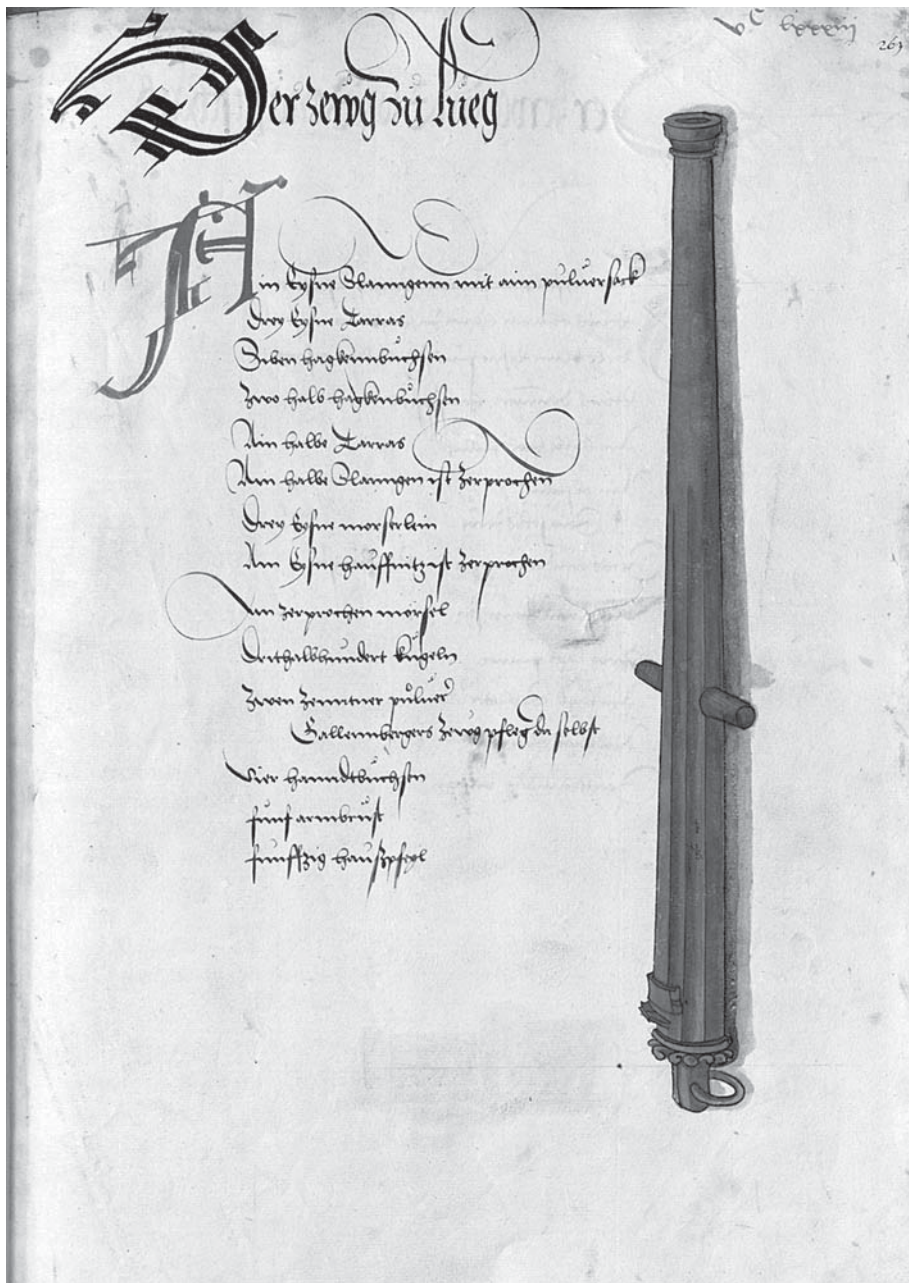 vᶜ lxxxiij
263
Der zewg zu Rieg
Ain Eysne Slanngenn mit aim pulůersack
Drey Eysne Tarras
Siben hagkennbůchsen
Zwo halb hagkenbůchsen
Ain halbe Tarras
Ain halbe Slanngen ist zerprochen
Drey Eysne morserlein
Ain Eysne hauffnitz ist zerprochen
Ain zerprochen morsel
Drithalbhundert kugeln
Zwen Zenntner puluer
Gallennbergers zewg pfleg da selbst
Vier hanndtbůchsen
funf armbrust
funffzig hauszpfeyl